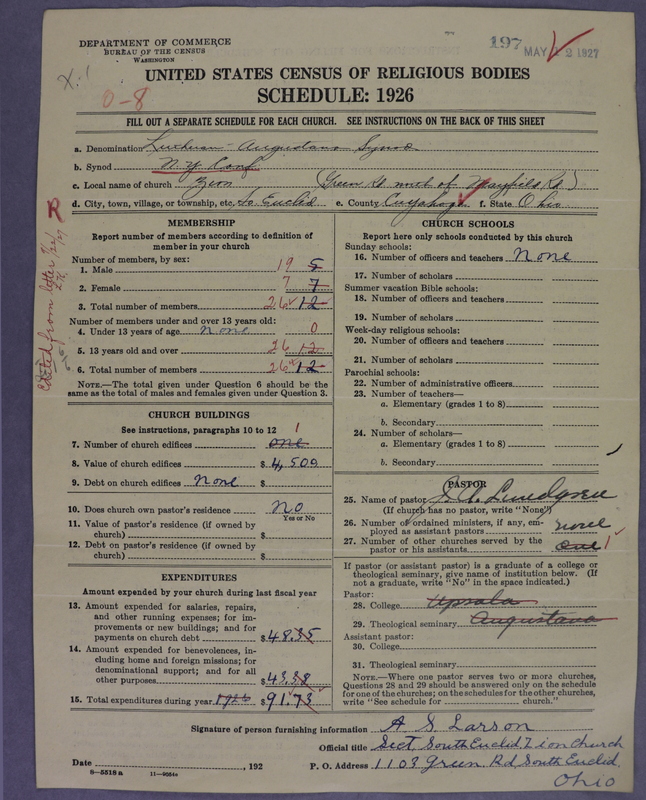 DEPARTMENT OF COMMERCE
BUREAU OF THE CENSUS
WASHINGTON
197 MAY 12 1927
X.1
0-8
UNITED STATES CENSUS OF RELIGIOUS BODIES
SCHEDULE: 1926
FILL OUT A SEPARATE SCHEDULE FOR EACH CHURCH. SEE INSTRUCTIONS ON THE BACK OF THIS SHEET
a. Denomination Lutheran - Augustana Synod
b. Synod N.Y. Conf
c. Local name of church Zion (Green Rd north of Mayfield Rd)
d. City, town, village, or township, etc. So. Euclid e. County Cuyahoga f. State Ohio
R
Edited from letter
MEMBERSHIP
Report number of members according to definition of
member in your church
Number of members, by sex:
1. Male 19 5
2. Female 7 7
3. Total number of members 26 12
Number of members under and over 13 years old:
4. Under 13 years of age None 0
5. 13 years old and over 26 12
6. Total number of members 26 12
NOTE.—The total given under Question 6 should be the
same as the total of males and females given under Question 3.
CHURCH BUILDINGS
See instructions, paragraphs 10 to 12
7. Number of church edifices one 1
8. Value of church edifices $4,500
9. Debt on church edifices None $
10. Does church own pastor's residence No
Yes or No
11. Value of pastor's residence (if owned by
church) $
12. Debt on pastor's residence (if owned by
church) $
EXPENDITURES
Amount expended by your church during last fiscal year
13. Amount expended for salaries, repairs,
and other running expenses; for im-
provements or new buildings; and for
payments on church debt $48.35
14. Amount expended for benevolences, in-
cluding home and foreign missions; for
denominational support; and for all
other purposes $43.38
15. Total expenditures during year 1926 $91.73
CHURCH SCHOOLS
Report here only schools conducted by this church
Sunday schools:
16. Number of officers and teachers None
17. Number of scholars
Summer vacation Bible schools:
18. Number of officers and teachers
19. Number of scholars
Week-day religious schools:
20. Number of officers and teachers
21. Number of scholars
Parochial schools:
22. Number of administrative officers
23. Number of teachers—
a. Elementary (grades 1 to 8)
b. Secondary
24. Number of scholars—
a. Elementary (grades 1 to 8)
b. Secondary
PASTOR
25. Name of pastor Lundgren
(If church has no pastor, write "None")
26. Number of ordained ministers, if any, em-
ployed as assistant pastors none
27. Number of other churches served by the
pastor or his assistants one 1
If pastor (or assistant pastor) is a graduate of a college or
theological seminary, give name of institution below. (If
not a graduate, write "No" in the space indicated.)
Pastor:
28. College Upsala
29. Theological seminary Augustana
Assistant pastor:
30. College
31. Theological seminary
NOTE.—Where one pastor serves two or more churches,
Questions 28 and 29 should be answered only on the schedule
for one of the churches; on the schedules for the other churches,
write "See schedule for church."
Signature of person furnishing information A S Larson
Official title Sect. South Euclid Zion Church
Date , 192 P. O. Address 1103 Green Rd. South Euclid
Ohio
8—5518a 11—9054a